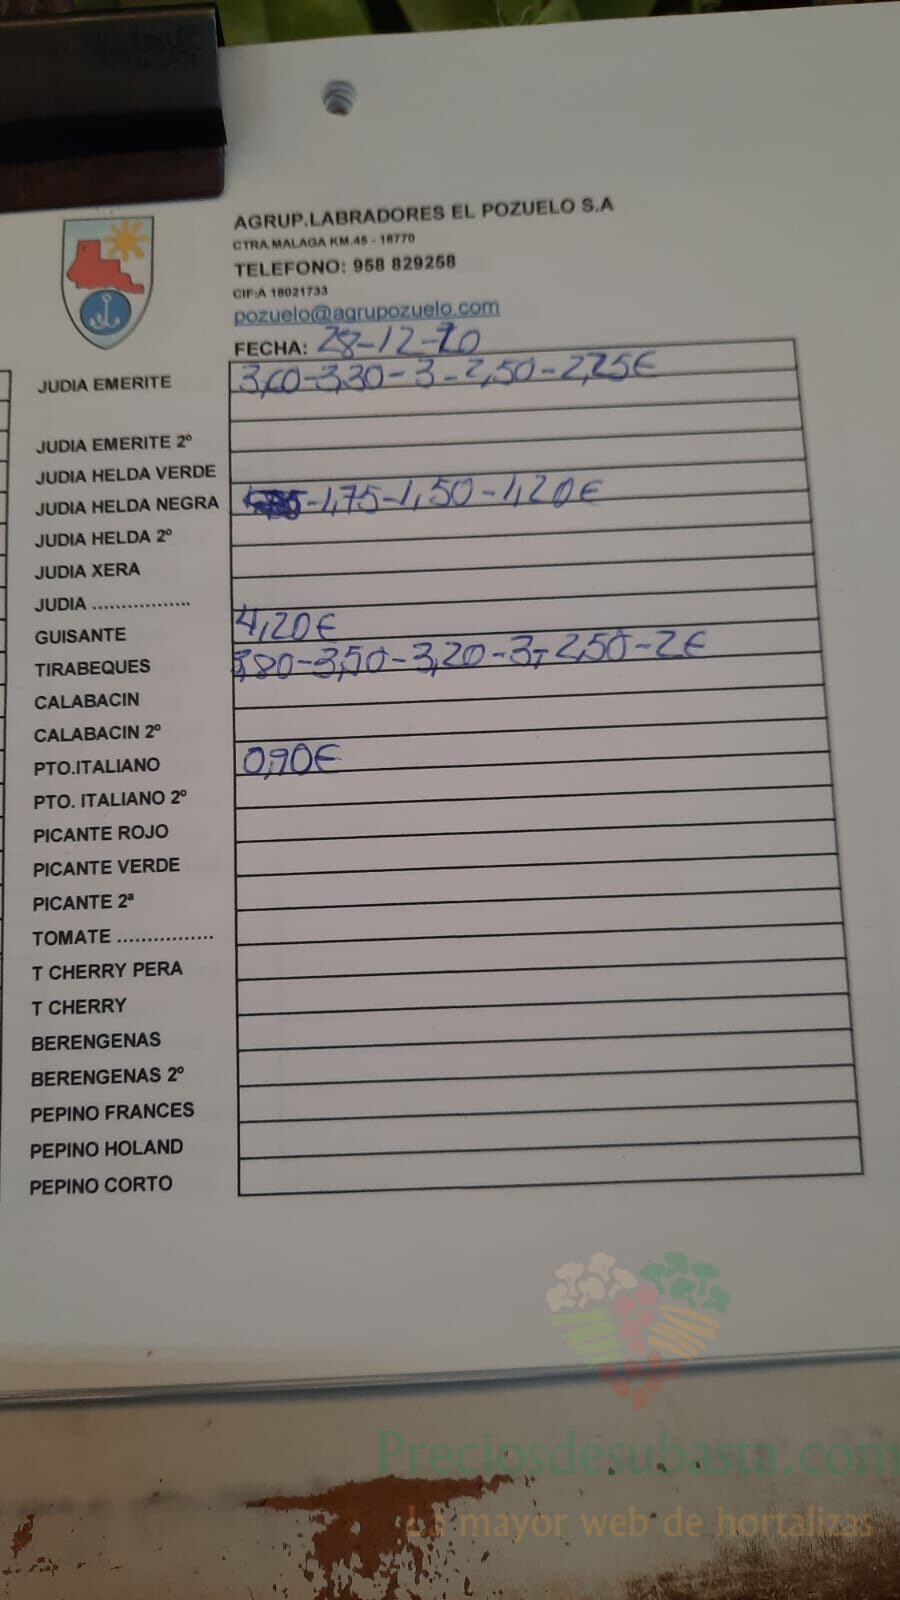 AGRUP.LABRADORES EL POZUELO S.A
CTRA.MALAGA KM.45 - 18770
TELEFONO: 958 829258
CIF:A 18021733
pozuelo@agrupozuelo.com
FECHA: 28-12-20
JUDIA EMERITE 3,60-3,30-3-2,50-2,25€
JUDIA EMERITE 2º
JUDIA HELDA VERDE
JUDIA HELDA NEGRA -1,75-1,50-1,20€
JUDIA HELDA 2º
JUDIA XERA
JUDIA .................
GUISANTE 4,20€
TIRABEQUES 3,80-3,50-3,20-3,-2,50-2€
CALABACIN
CALABACIN 2º
PTO.ITALIANO 0,90€
PTO. ITALIANO 2º
PICANTE ROJO
PICANTE VERDE
PICANTE 2ª
TOMATE ................
T CHERRY PERA
T CHERRY
BERENGENAS
BERENGENAS 2º
PEPINO FRANCES
PEPINO HOLAND
PEPINO CORTO
Preciosdesubasta.com
La mayor web de hortalizas